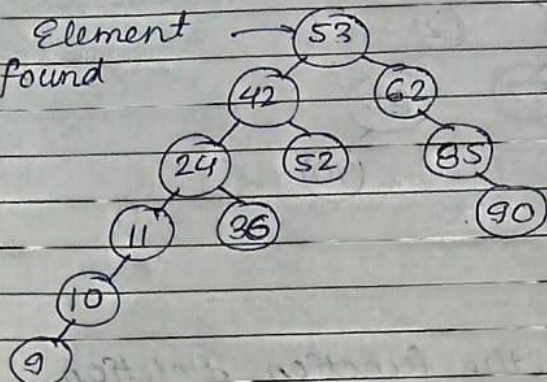 Element → 53
found
42 62
24 52 85
11 36 90
10
9